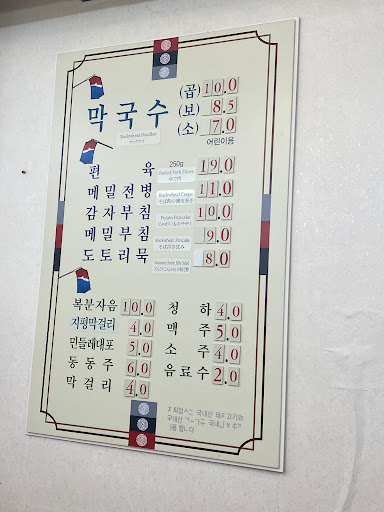 막국수
Buckwheat Noodles
(곱) 10.0
(보) 8.5
(소) 7.0
어린이용
편육 250g 19.0
Boiled Pork Slices
메밀전병 11.0
Buckwheat Crepe
감자부침 10.0
Potato Pancake
메밀부침 9.0
Buckwheat Pancake
도토리묵 8.0
복분자음 10.0
지평막걸리 4.0
민들레대포 5.0
동동주 6.0
막걸리 4.0
청하 4.0
맥주 5.0
소주 4.0
음료수 2.0
국내산 돼지고기와
국내산